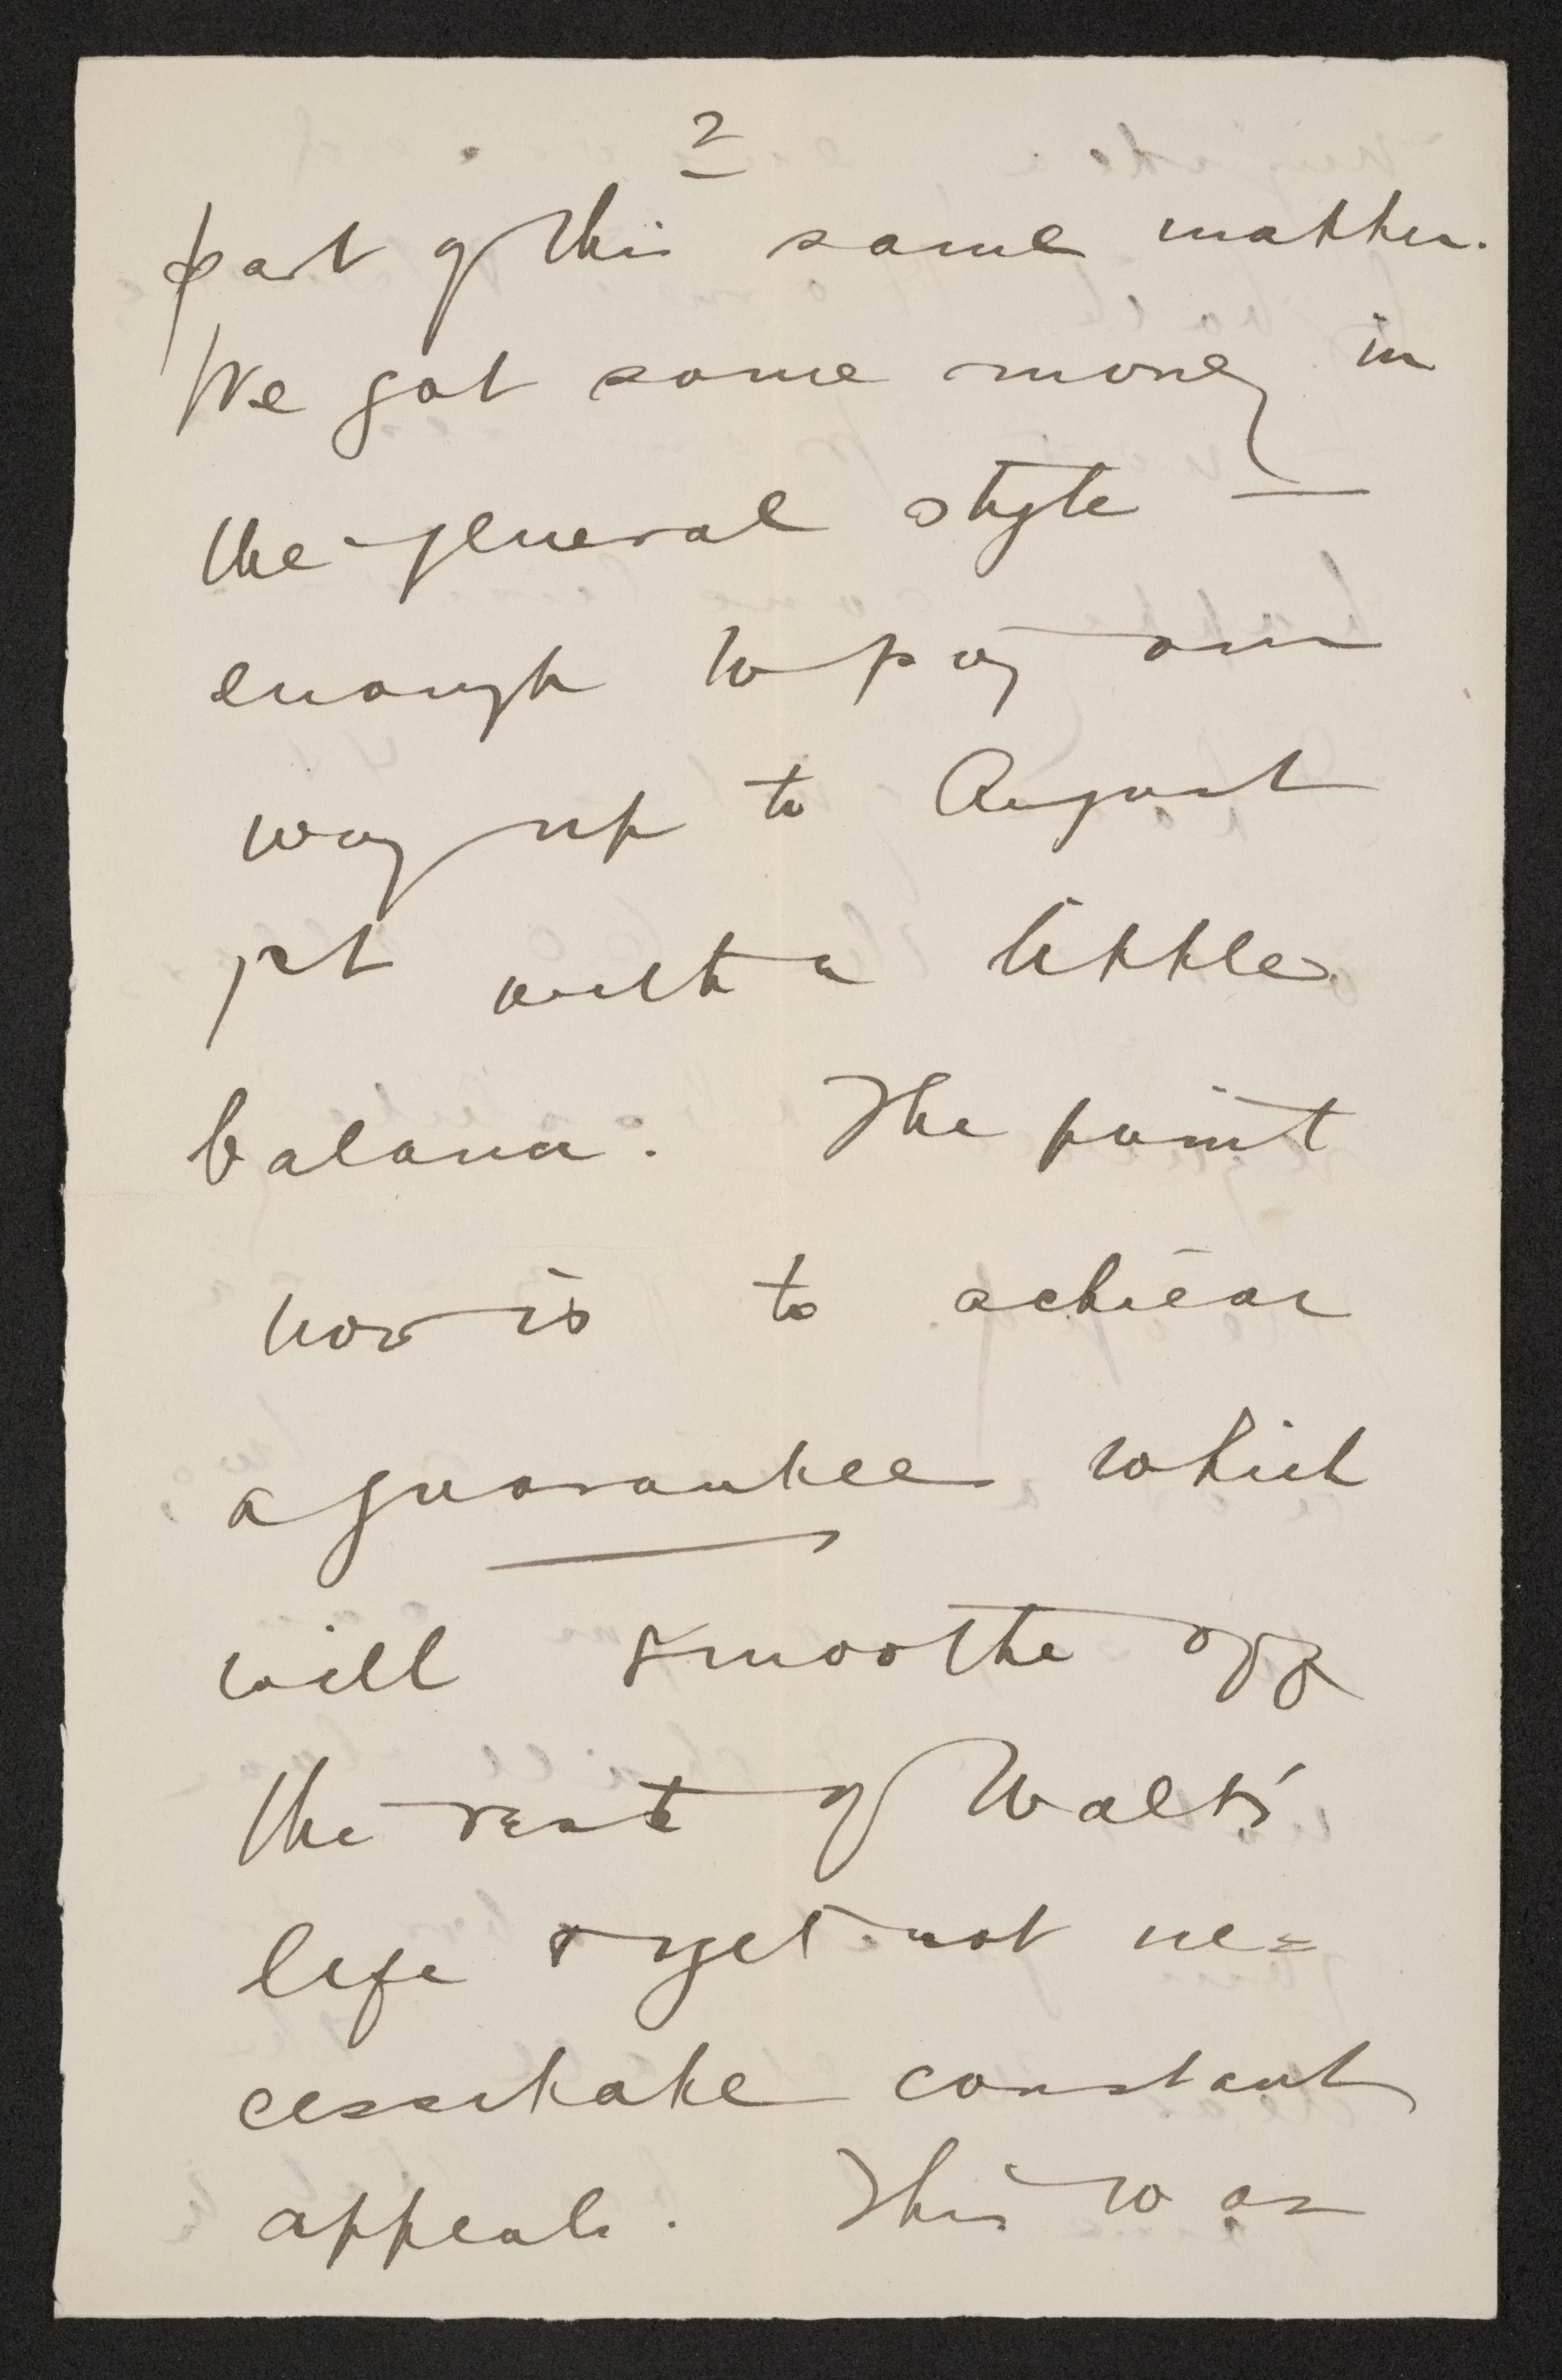 2
part of this same matter.
We got some money in
the general style —
enough to pay our
way up to August
1st with a little
balance. The point
now is to achieve
a guarantee which
will smoothe off
the rest of Walt's
life & yet not ne=
cessitate constant
appeals. This was